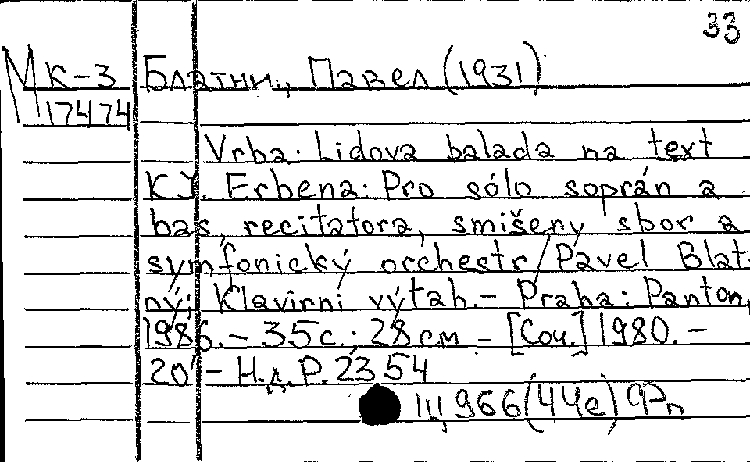 33
М К-3 Блатни, Павел (1931)
17474
Vrba. Lidova balada na text
K.J. Erbena: Pro sólo soprán a
bas, recitatora, smišeny sbor a
symfonický orchestr / Pavel Blat-
ný; Klavirni výtah. - Praha: Panton,
1986. - 35 с.; 28 см. - [Соч.] 1980. -
20' - Н.д. Р. 2354
Щ 966(4Че) Фп